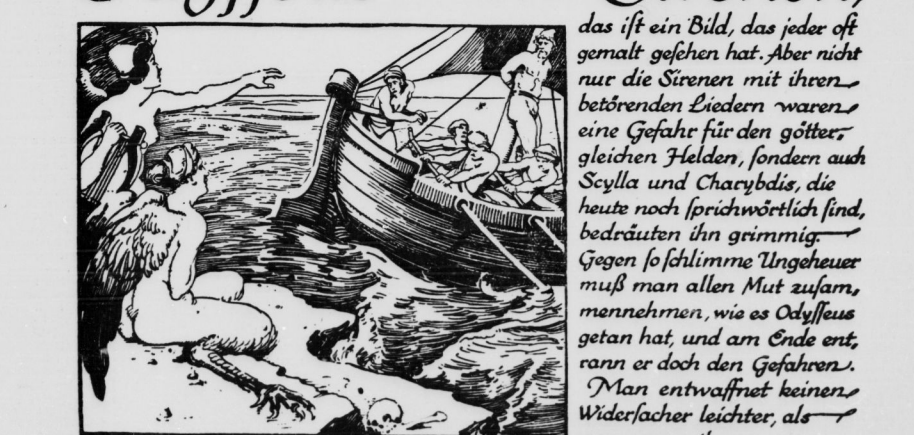 das iſt ein Bild, das jeder oft
gemalt geſehen hat. Aber nicht
nur die Sirenen mit ihren
betörenden Liedern waren
eine Gefahr für den götter-
gleichen Helden, ſondern auch
Scylla und Charybdis, die
heute noch ſprichwörtlich ſind,
bedräuten ihn grimmig.
Gegen ſo ſchlimme Ungeheuer
muß man allen Mut zuſam-
mennehmen, wie es Odyſſeus
getan hat, und am Ende ent-
rann er doch den Gefahren.
Man entwaffnet keinen
Widerſacher leichter, als